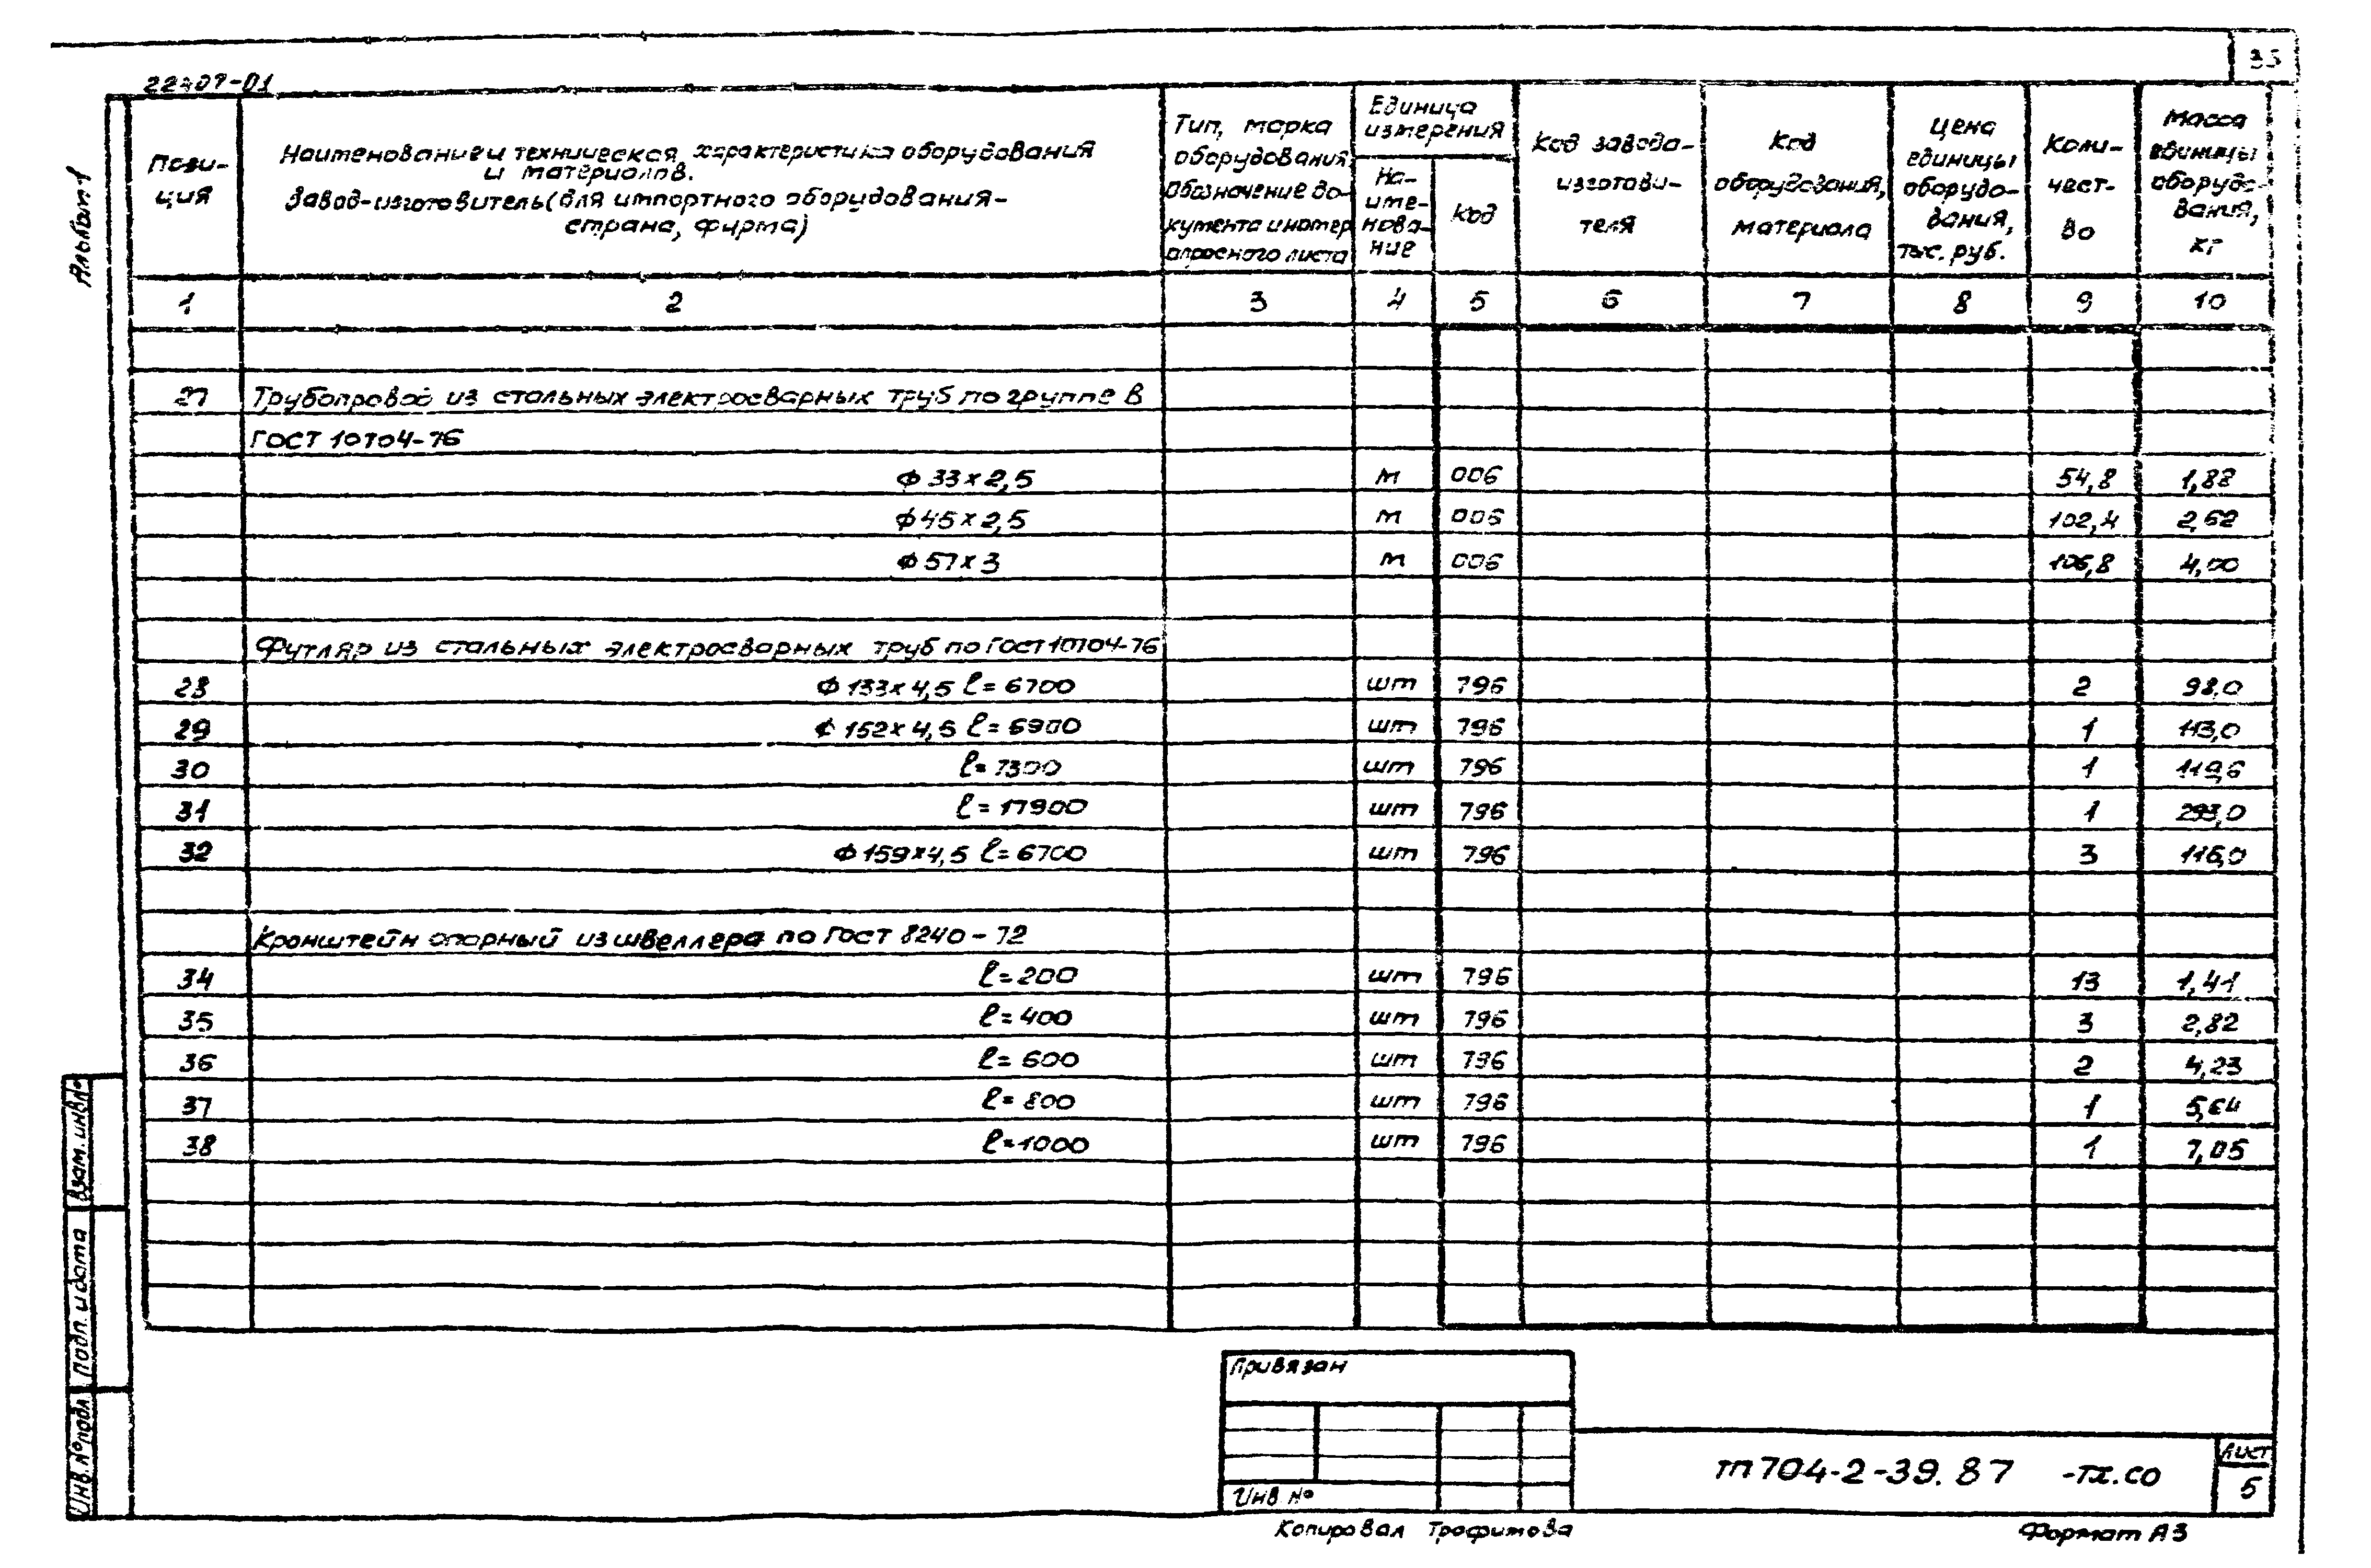 35
22407-01
Альбом 1
Пози-
ция
Наименование и техническая характеристика оборудования
и материалов.
Завод-изготовитель (для импортного оборудования-
страна, фирма)
Тип, марка
оборудования
Обозначение до-
кумента и номер
опросного листа
Единица
измерения
На-
име-
нова-
ние
Код
Код завода-
изготови-
теля
Код
оборудования,
материала
Цена
единицы
оборудо-
вания,
тыс. руб.
Коли-
чест-
во
Масса
единицы
оборудо-
вания,
кг
1 2 3 4 5 6 7 8 9 10
27 Трубопровод из стальных электросварных труб по группе В
ГОСТ 10704-76
Ф 33 х 2,5 м 006 54,8 1,88
Ф 45 х 2,5 м 006 102,4 2,62
Ф 57 х 3 м 006 106,8 4,00
Футляр из стальных электросварных труб по ГОСТ 10704-76
28 Ф 133 х 4,5 ℓ= 6700 шт 796 2 98,0
29 Ф 152 х 4,5 ℓ= 6900 шт 796 1 113,0
30 ℓ= 7300 шт 796 1 119,6
31 ℓ= 17900 шт 796 1 293,0
32 Ф 159х4,5 ℓ= 6700 шт 796 3 115,0
Кронштейн опорный из швеллера по ГОСТ 8240-72
34 ℓ=200 шт 796 13 1,41
35 ℓ=400 шт 796 3 2,82
36 ℓ= 600 шт 796 2 4,23
37 ℓ= 800 шт 796 1 5,64
38 ℓ=1000 шт 796 1 7,05
Взам. инв.№
Подп. и дата
Инв. № подл.
Привязан
Инв №
ТП 704-2-39.87 -ТХ.СО
Лист
5
Копировал Трофимова
Формат А3